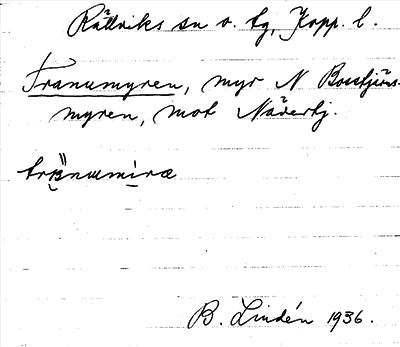 Rättviks sn o. tg, Kopp. l.
Tranumyren, myr N Bosstjärns-
myren, mot Näverbj.
B. Lindén 1936.